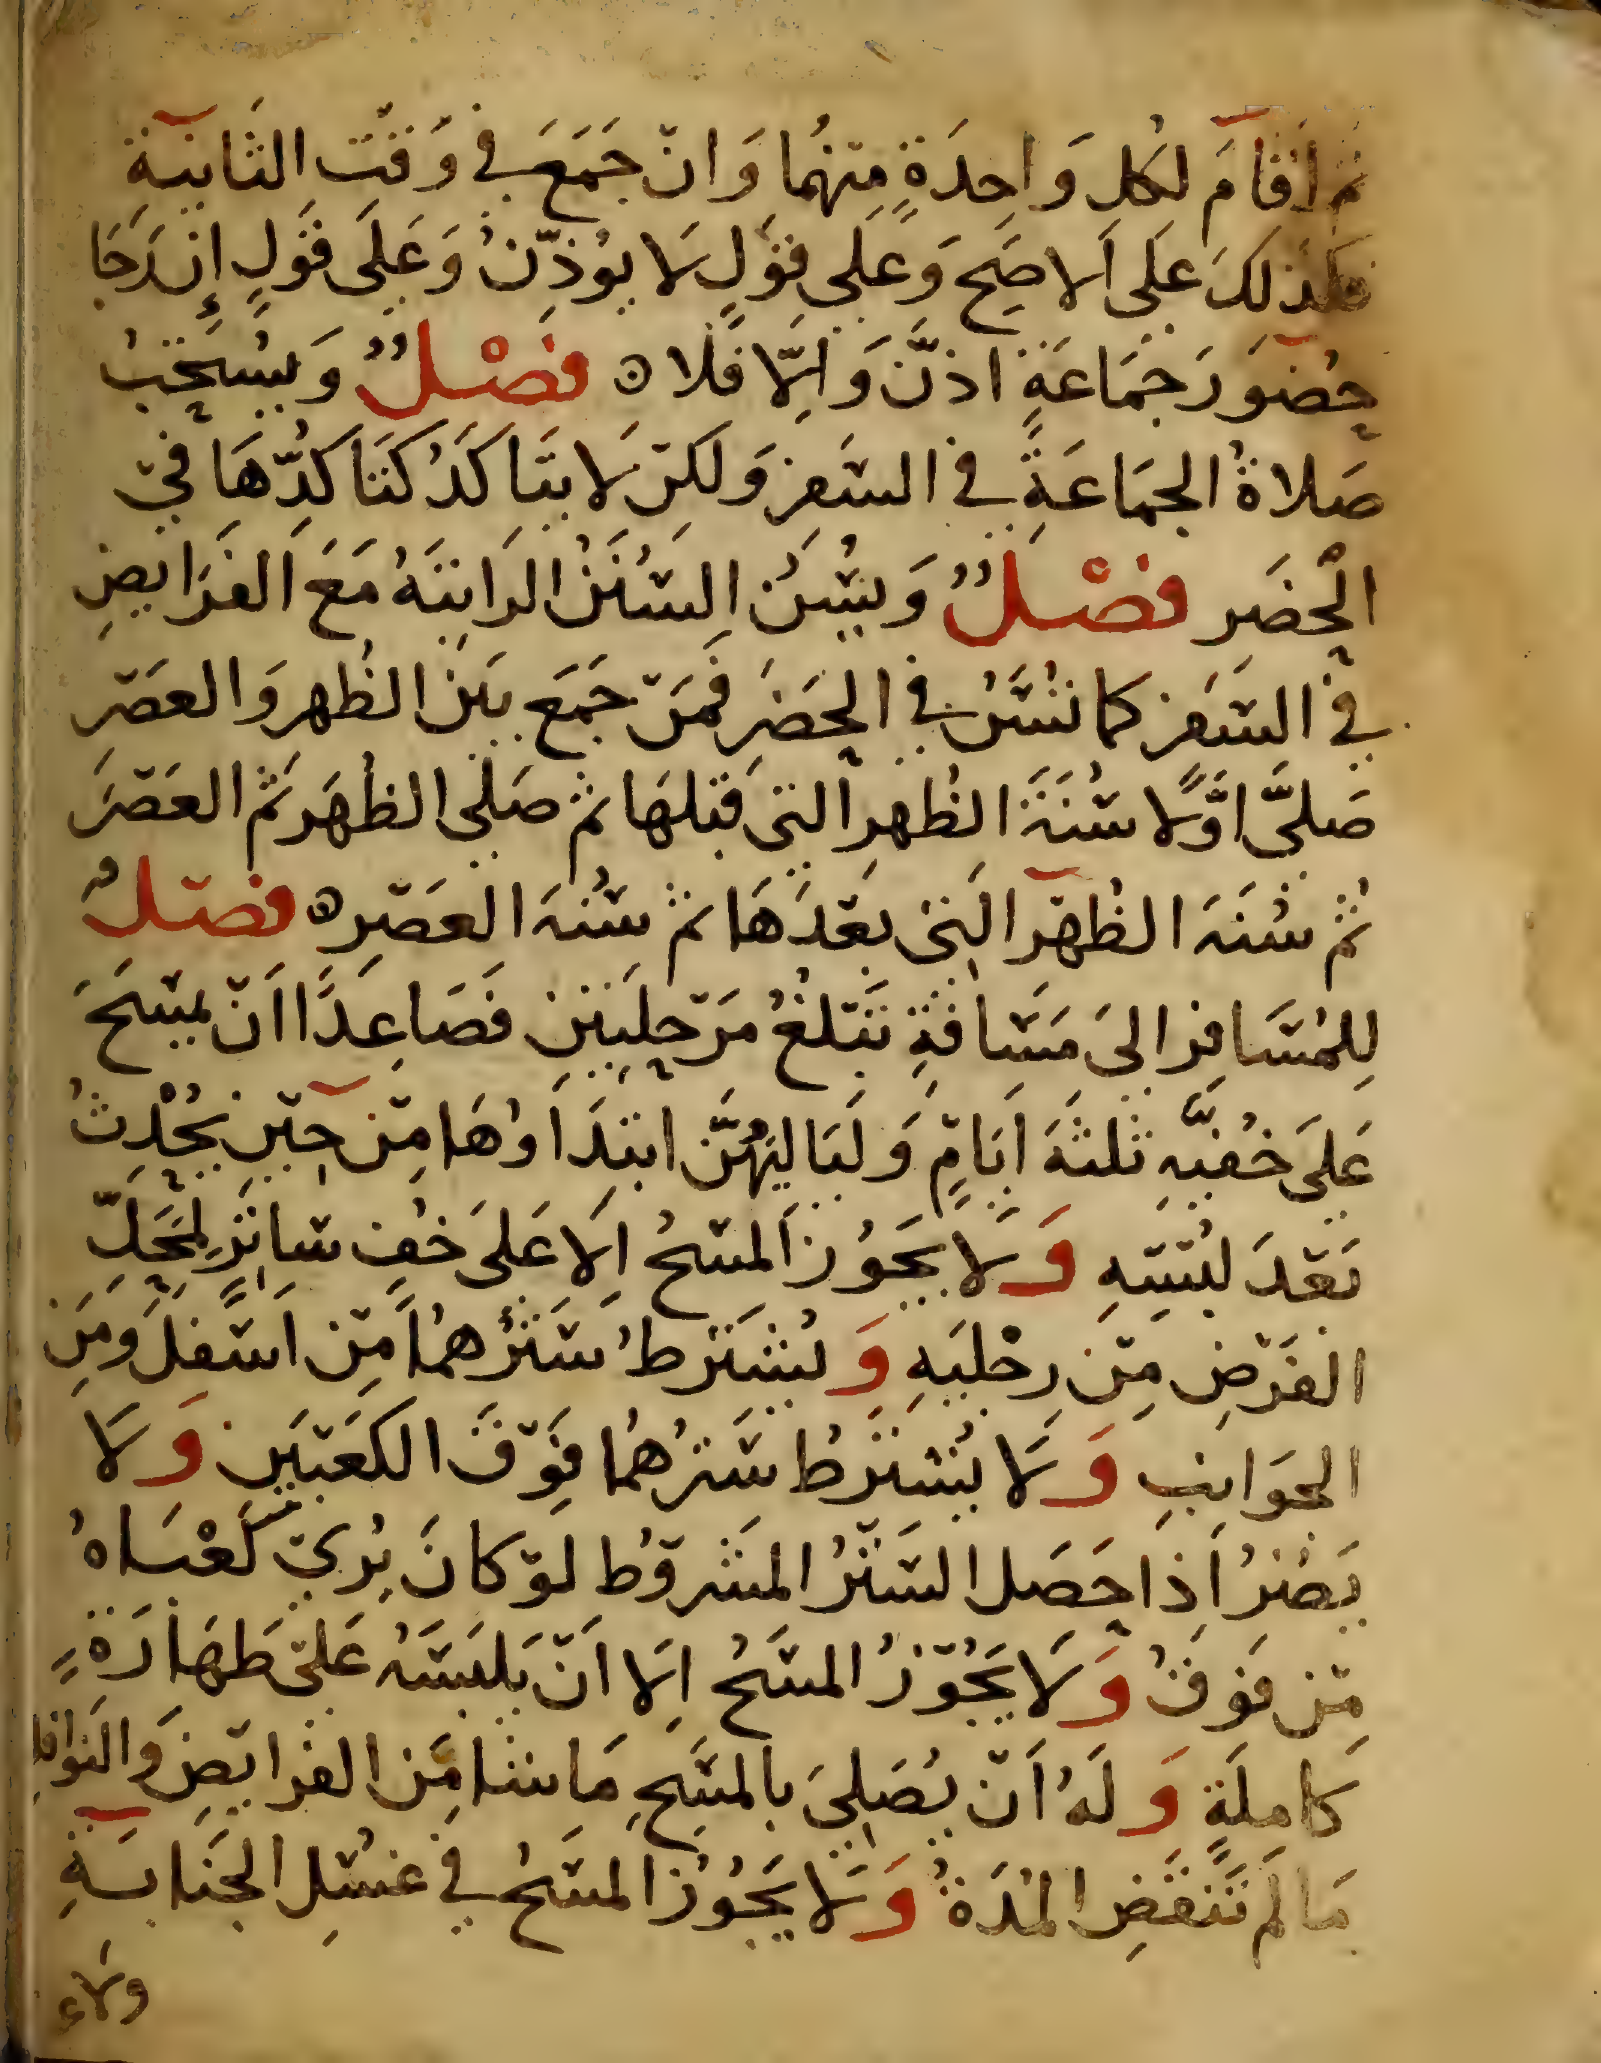 ثم اَقامَ لكلِ وَاحِدَةٍ مِنهُما وَان جَمَعَ في وَقت الثانيةِ
فكذلكَ علَى الاصَحِ وَعَلى قولٍ لَا يؤذّنُ وَعَلَى قَولٍ إن رَجَا
حُضوَرَ جَمَاعَةٍ اذنَّ وَاِلّا فَلا ه فصْلٌ وَيُستحَبُ
صَلاةُ الجمَاعَةِ في السَفر وَلكن لَا يتَاكَدُ كَتَاكدُّهَا في
الْحضَر فصْلٌ وَيُسَنُ السُنَنُ الرَاتبَهُ مَعَ الفَرَايضِ
في السَفر كما تُسَنُ في الحَضَر فَمَن جَمَع بيَن الظُهر وَالعَصر
صَلىَّ اوَّلًا سُنَةَ الظُهرِ التي قبلهَا ثم صَلى الظُهَر ثَم العَصَر
ثُم سُنَهَ الظُهر التي بعَدَهَا ثم سُنهَ العَصرِ ه فصلٌ
لِلمُسَافِر الىَ مَسَافةٍ تَبلغُ مَرحلتين فَصَاعِدًا اَن يمسَحَ
عَلىَ خفيّهِ ثلثهَ اَيامٍ وَلَيَاليهُنَّ ابتِدَاوُهَا مِن حين يحْدِثُ
بَعدَ لبُسهِ وَلَا يجَوُز المسحُ اِلَا عَلىَ خفِ سَاترٍ لمحَلِّ
الفَرضِ مِن رجْليَهِ وَيُشتَرطُ سَترُهمُا مِن اَسفلَ وَمِن
الجوَانِبِ وَلَا يُشترَطُ سَترُهُما فوَقَ الكَعبَين وَلَا
يَضُرُ اِذا حَصَل السَترُ المشروُط لو كانَ يُرى كَعْبَاهُ
مِن فَوقُ وَلَا يَجُوزُ المسَحُ اِلَا اَن يَلبَسَهُ عَلىَ طَهَارَةٍ
كامِلَةٍ وَلَهُ اَن يُصَلىَ بالمسَحِ مَا شا مِن الفرَايضِ وَالنَوافلِ
مَا لَم تَنقَضِ المدَةُ وَلَا يَجُوُز المسَحُ في غسُلِ الجَنابَةِ
ولاء